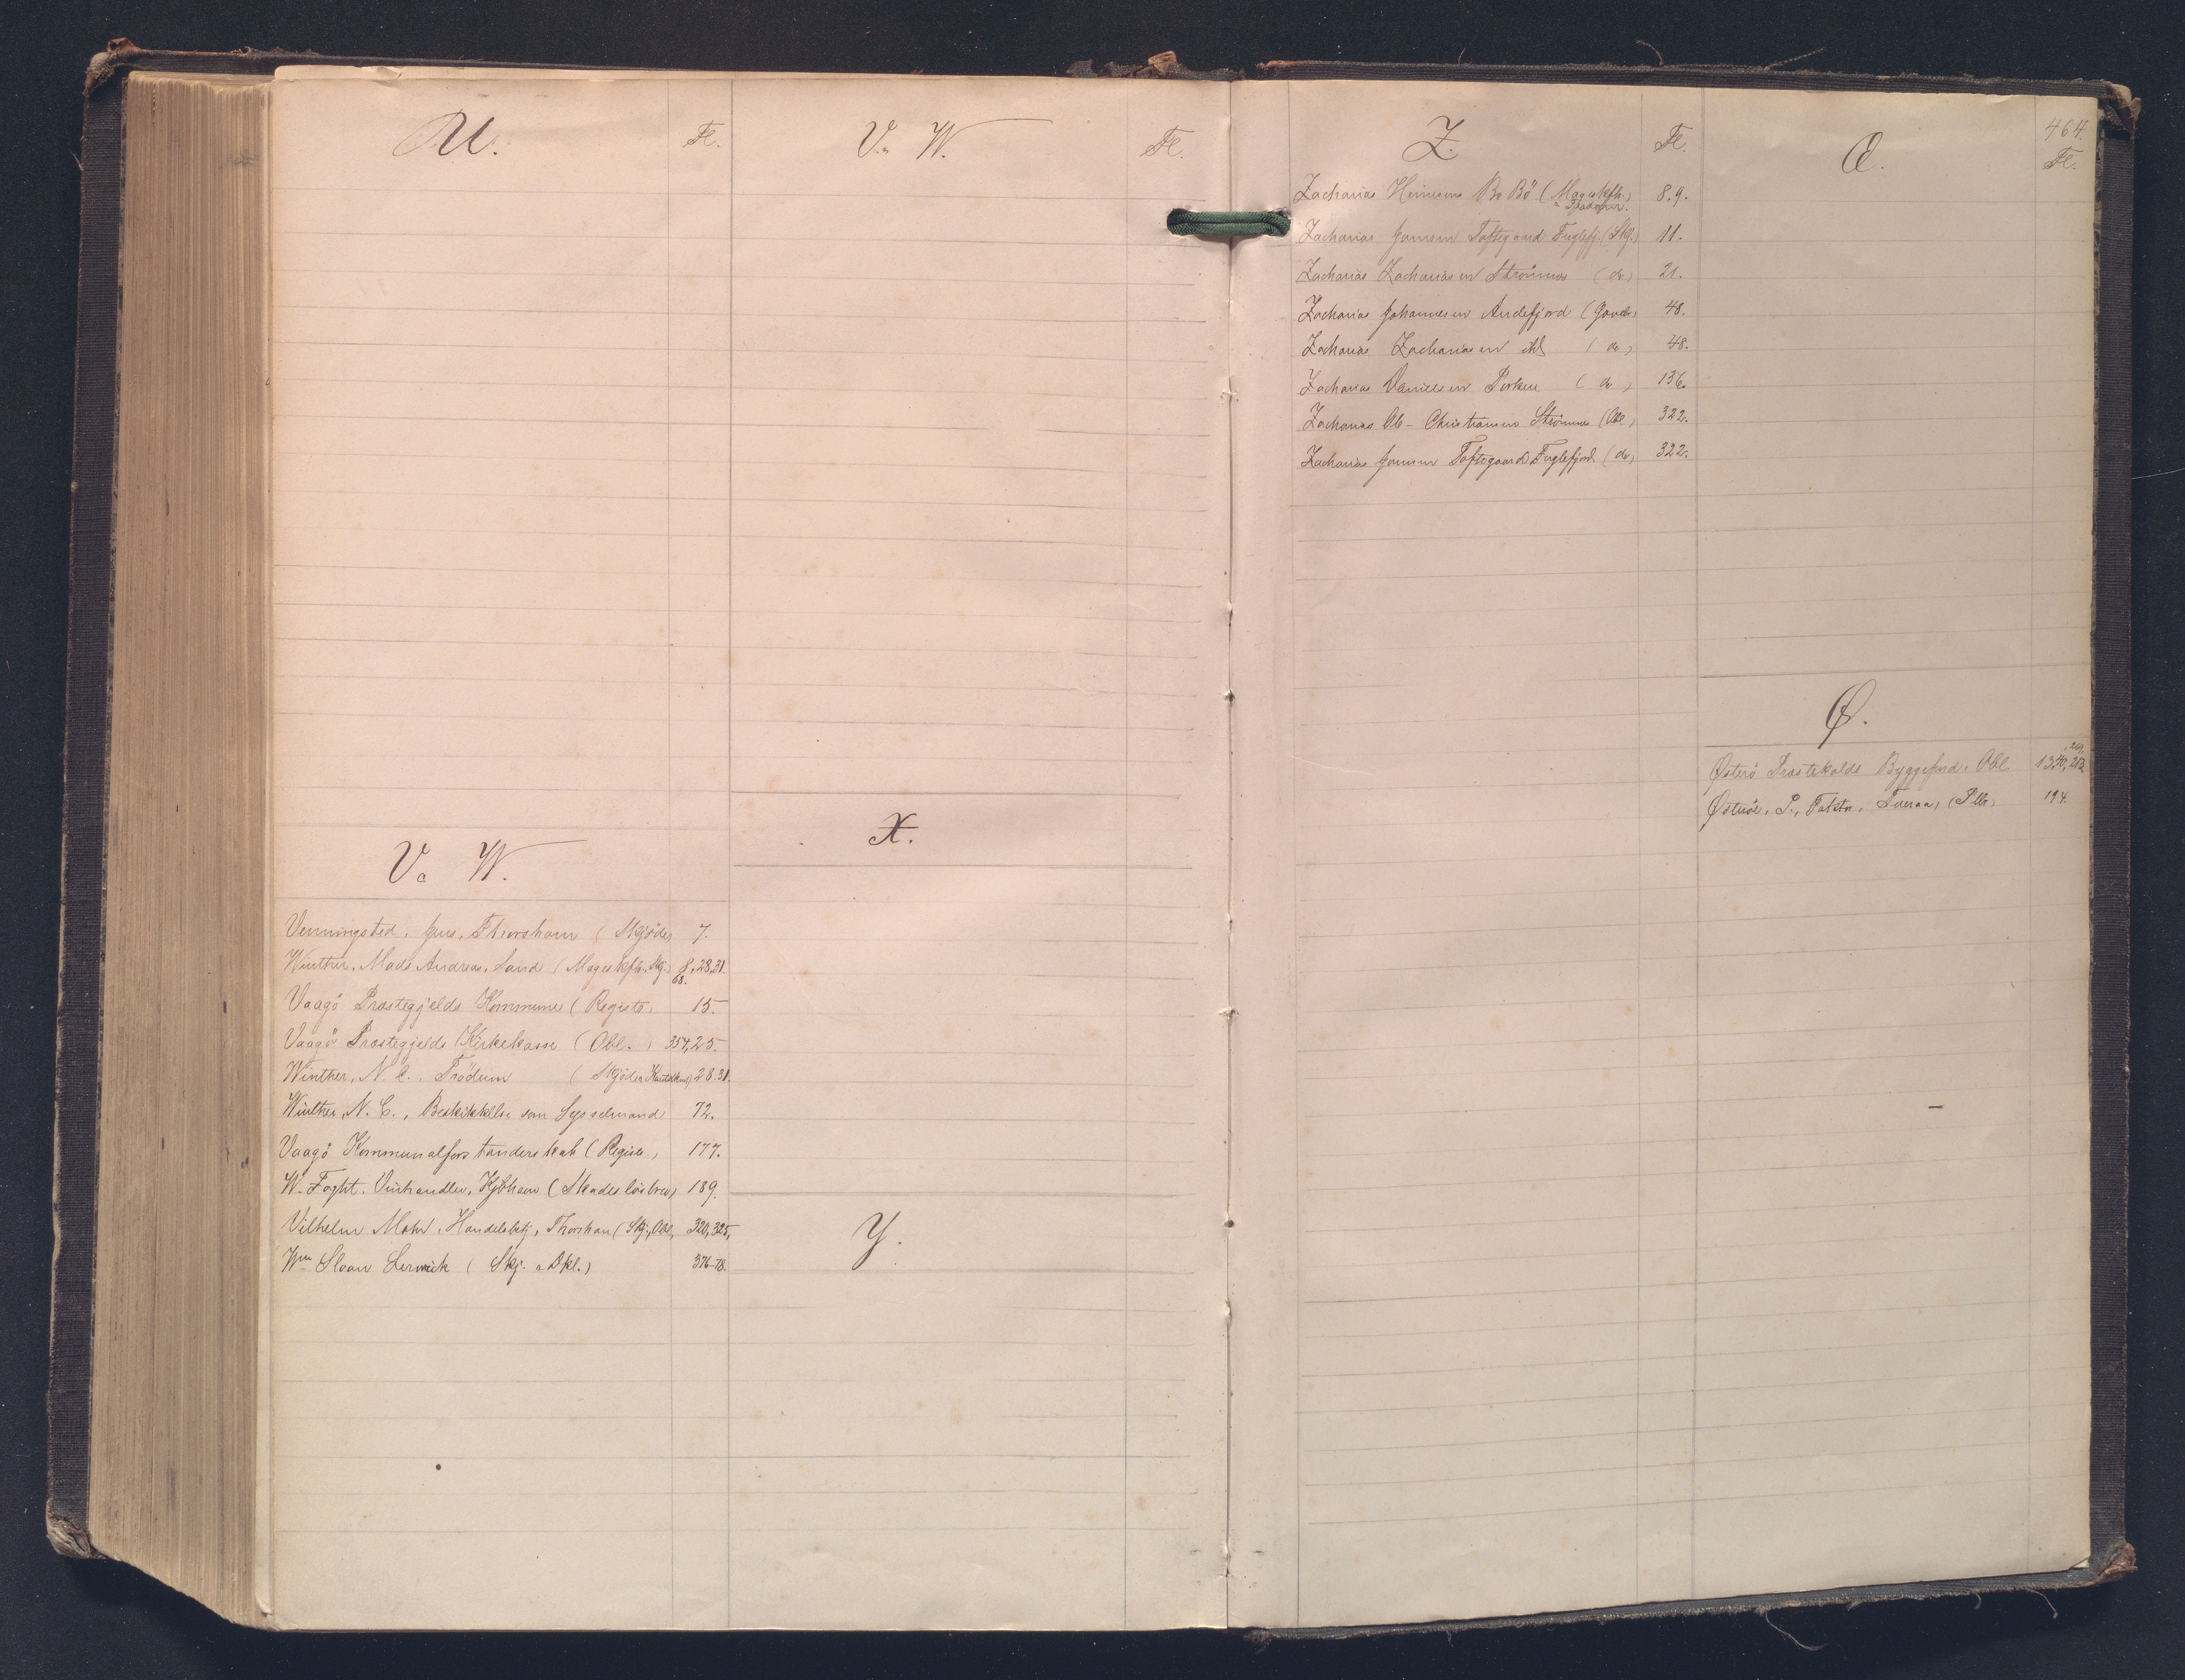 U.
Fl.
V. W.
Venningsted, Jens, Thorshavn (Skjöde) 7.
Winther, Mads Andreas, Sand (Mageskifte, Skj.) 8, 28, 31.
68.
Vaagö Præstegjelds Kommune (Registr.) 15.
Vaagö Præstegjelds Kirkekasse (Obl.) 354, 25.
Winther, N. C., Trödum (Skjöde 28. 31.
Winther, N. C., Beskikkelse som Sysselmand 72.
Vaagö Kommunalforstanderskab (Registr.) 177.
W. Foght. Vinhandler, Kjöbhavn (Skadeslösbrev) 189.
Vilhelm Mohr, Handelsbetj., Thorshavn (Skj., Obl., 320, 325,
Wm Sloan Lerwick (Skj. a Dkl.) 376-78.
V. W.
Fl.
X.
Y.
Z.
Fl.
Zacharias Heinesens Bo Bö (Mageskfte.) 8. 9.
Zacharias Joensen Toftegaard Fuglefj. (Skj.) 11.
Zacharias Zachariasen Strömnæs (do) 21.
Zacharias Johannesen Andefjord ( 48.
Zacharias Zachariasen (do) 48.
Zacharias Danielsen Porkere (do) 136.
Zacharias Ole-Christiansen Strömnæs (Obl.) 322.
Zacharias Joensen Toftegaard, Fuglefjord (do) 322.
464.
Æ.
Fl.
Ø.
Østerö Præstekalds Byggefond. Obl. 13, 40, 213.
Østeröe, P., Tveraa, (Ptbr.) 194.